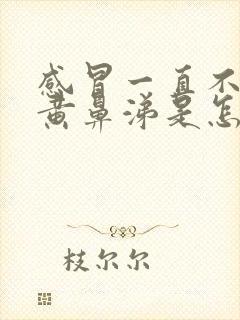 感冒一直不
黄鼻涕是怎
枝尔尔